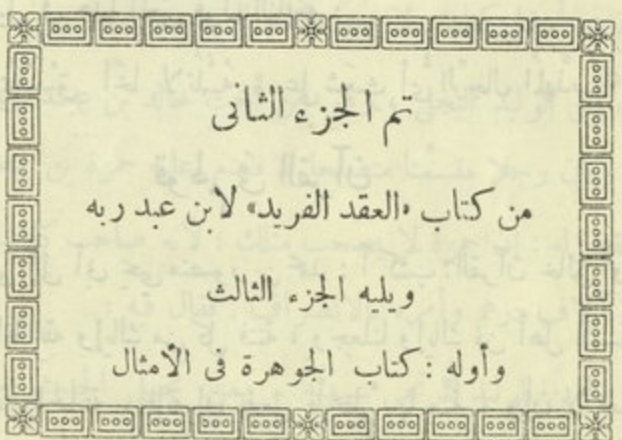 تم الجزء الثانى
من كتاب «العقد الفريد» لابن عبد ربه
ويليه الجزء الثالث
وأوله : كتاب الجوهرة فى الأمثال